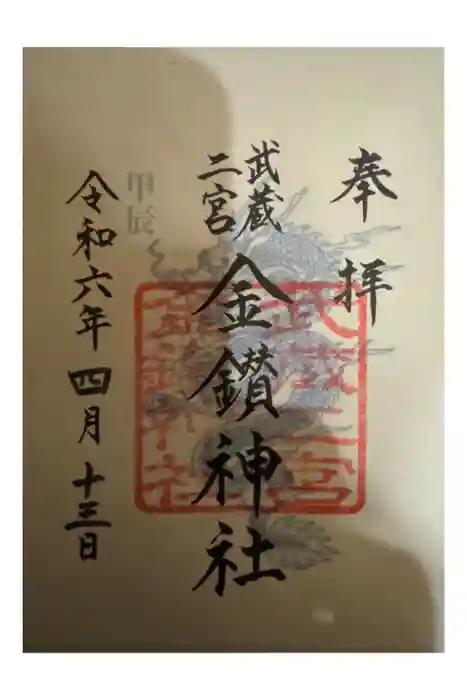 奉拝
武蔵
二宮
金鑚神社
武蔵二宮
金鑚神社
甲辰
令和六年四月十三日